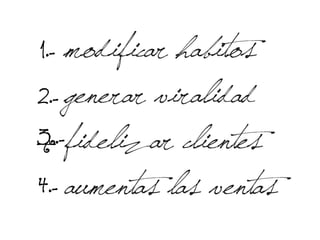 1.- modificar habitos
2.- generar viralidad
3.- fidelizar clientes
4.- aumentas las ventas